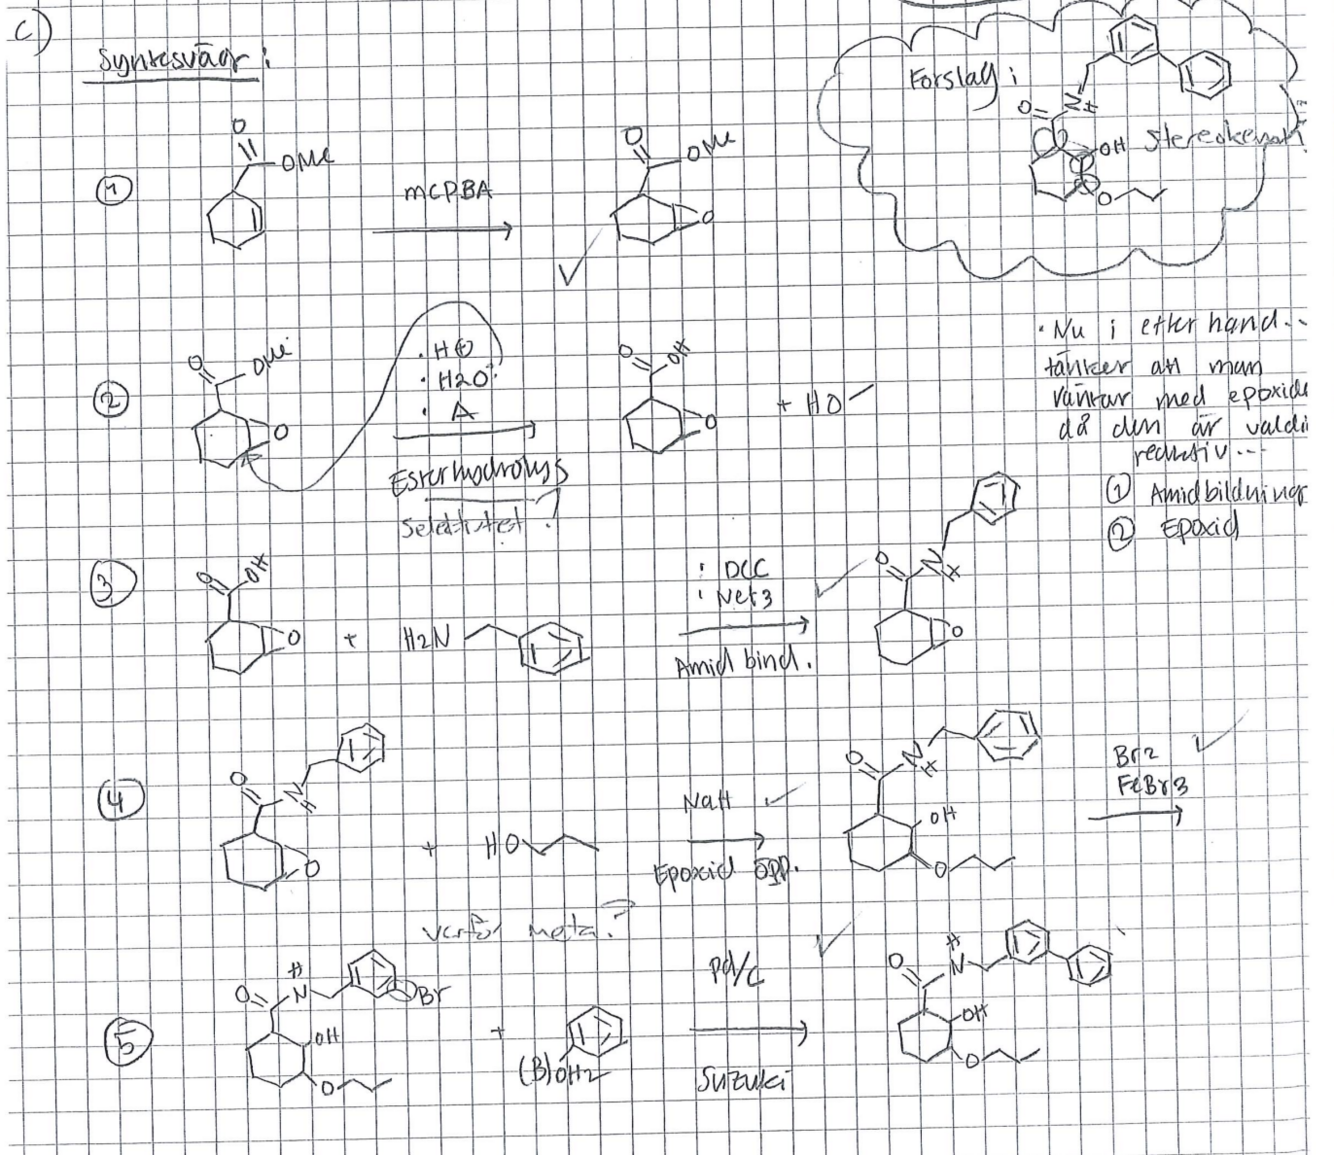 c)
Syntesvägr :
Förslag :
O
N
H
OH
O
①
O
OMe
mCPBA
O
OMe
O
②
O
OMe
O
· H⊕
· H2O
· Δ
Esterhydrolys
Selektivitet?
O
OH
O
+ HO
· Nu i efterhand..
tänker att man
väntar med epoxide
då den är väldi
reaktiv...
① Amidbildningr
② Epoxid
③
O
OH
O
+
H2N
: DCC
: Net3
Amid bind.
O
N
H
O
④
O
N
H
O
+
HO
NaH
Epoxid öpp.
O
N
H
OH
O
Br2
FeBr3
varför meta?
⑤
O
H
N
Br
OH
O
+
(B)OH2
Pd/C
Suzuki
O
H
N
OH
O